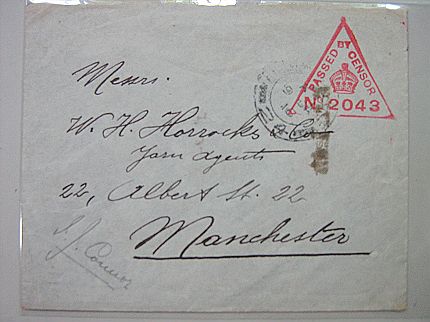 Messrs.
PASSED BY CENSOR
No 2043
W. H. Horrocks & Co
Yarn Agents
22, Albert St. 22
Manchester